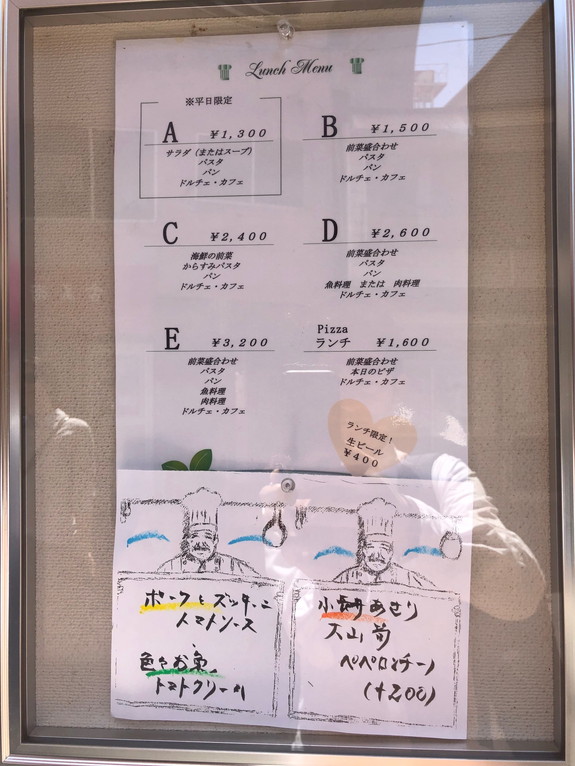 Lunch Menu
※平日限定
A ¥1,300
サラダ (またはスープ)
パスタ
パン
ドルチェ・カフェ
B ¥1,500
前菜盛合わせ
パスタ
パン
ドルチェ・カフェ
C ¥2,400
海鮮の前菜
からすみパスタ
パン
ドルチェ・カフェ
D ¥2,600
前菜盛合わせ
パスタ
パン
魚料理 または 肉料理
ドルチェ・カフェ
E ¥3,200
前菜盛合わせ
パスタ
パン
魚料理
肉料理
ドルチェ・カフェ
Pizza
ランチ ¥1,600
前菜盛合わせ
本日のピザ
ドルチェ・カフェ
ランチ限定!
生ビール
¥400
ポークとズッキーニ
トマトソース
色々お魚
トマトクリーム
あさり
ペペロンチーノ
(+200)